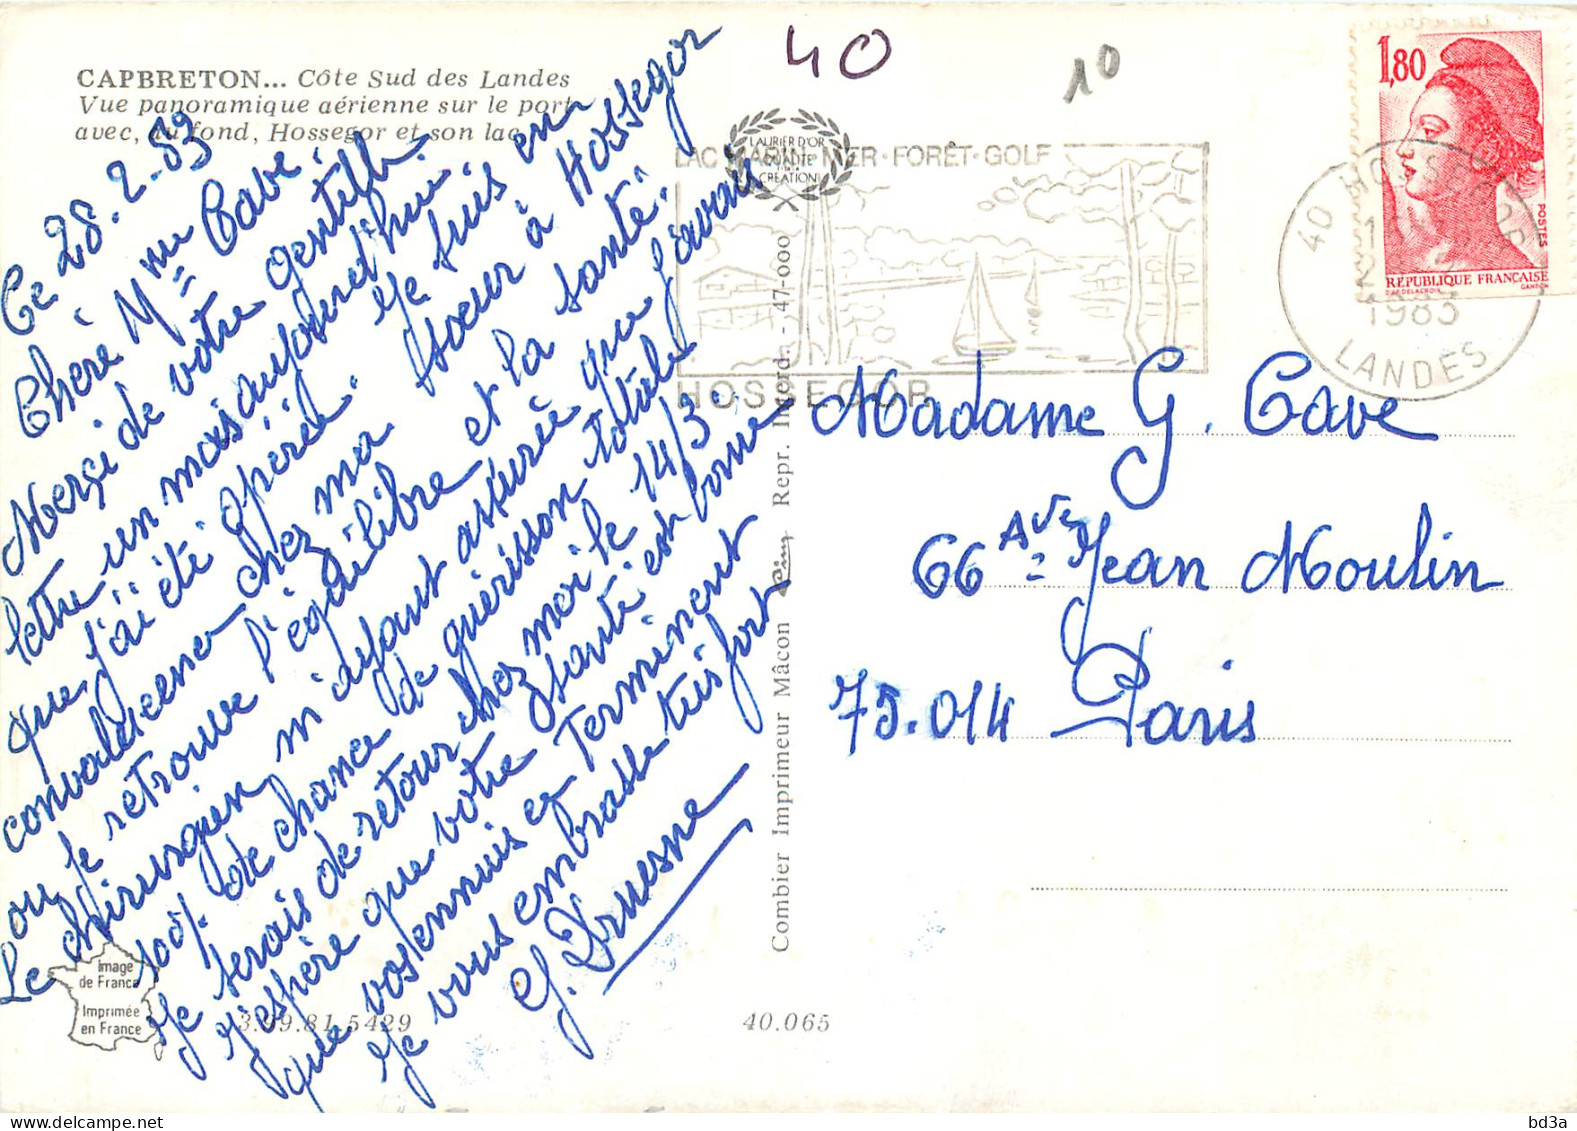 CAPBRETON... Côte Sud des Landes
Vue panoramique aérienne sur le port
avec, au fond, Hossegor et son lac
Ce 28.2.83
Chère Mme Cave.
Merçi de votre gentille
lettre un mois aujourd'hui
que j'ai été opérée. Je suis en
convalescence chez ma soeur à Hossegor
ou je retrouve l'équilibre et la santé.
Le chirurgien m'ayant assurée que j'avais
100% de chance de guérisson totale
Je serais de retour chez moi le 14/3.
J'espère que votre santé est bonne
que vos ennuis se Terminent
Je vous embrasse très fort
G. Druesne
40
10
LAURIER D'OR
QUALITÉ
CRÉATION
LAC MARIN·MER·FORÊT·GOLF
HOSSEGOR
40 HOSSEGOR
1983
LANDES
1,80
POSTES
RÉPUBLIQUE FRANÇAISE
D'AP. DELACROIX
GANDON
Madame G. Cave
66 Ave Jean Moulin
75.014 Paris
Combier Imprimeur Mâcon
Repr. Interd. - 47-000
Image
de France
Imprimée
en France
3.99.81.5429
40.065
bd3a